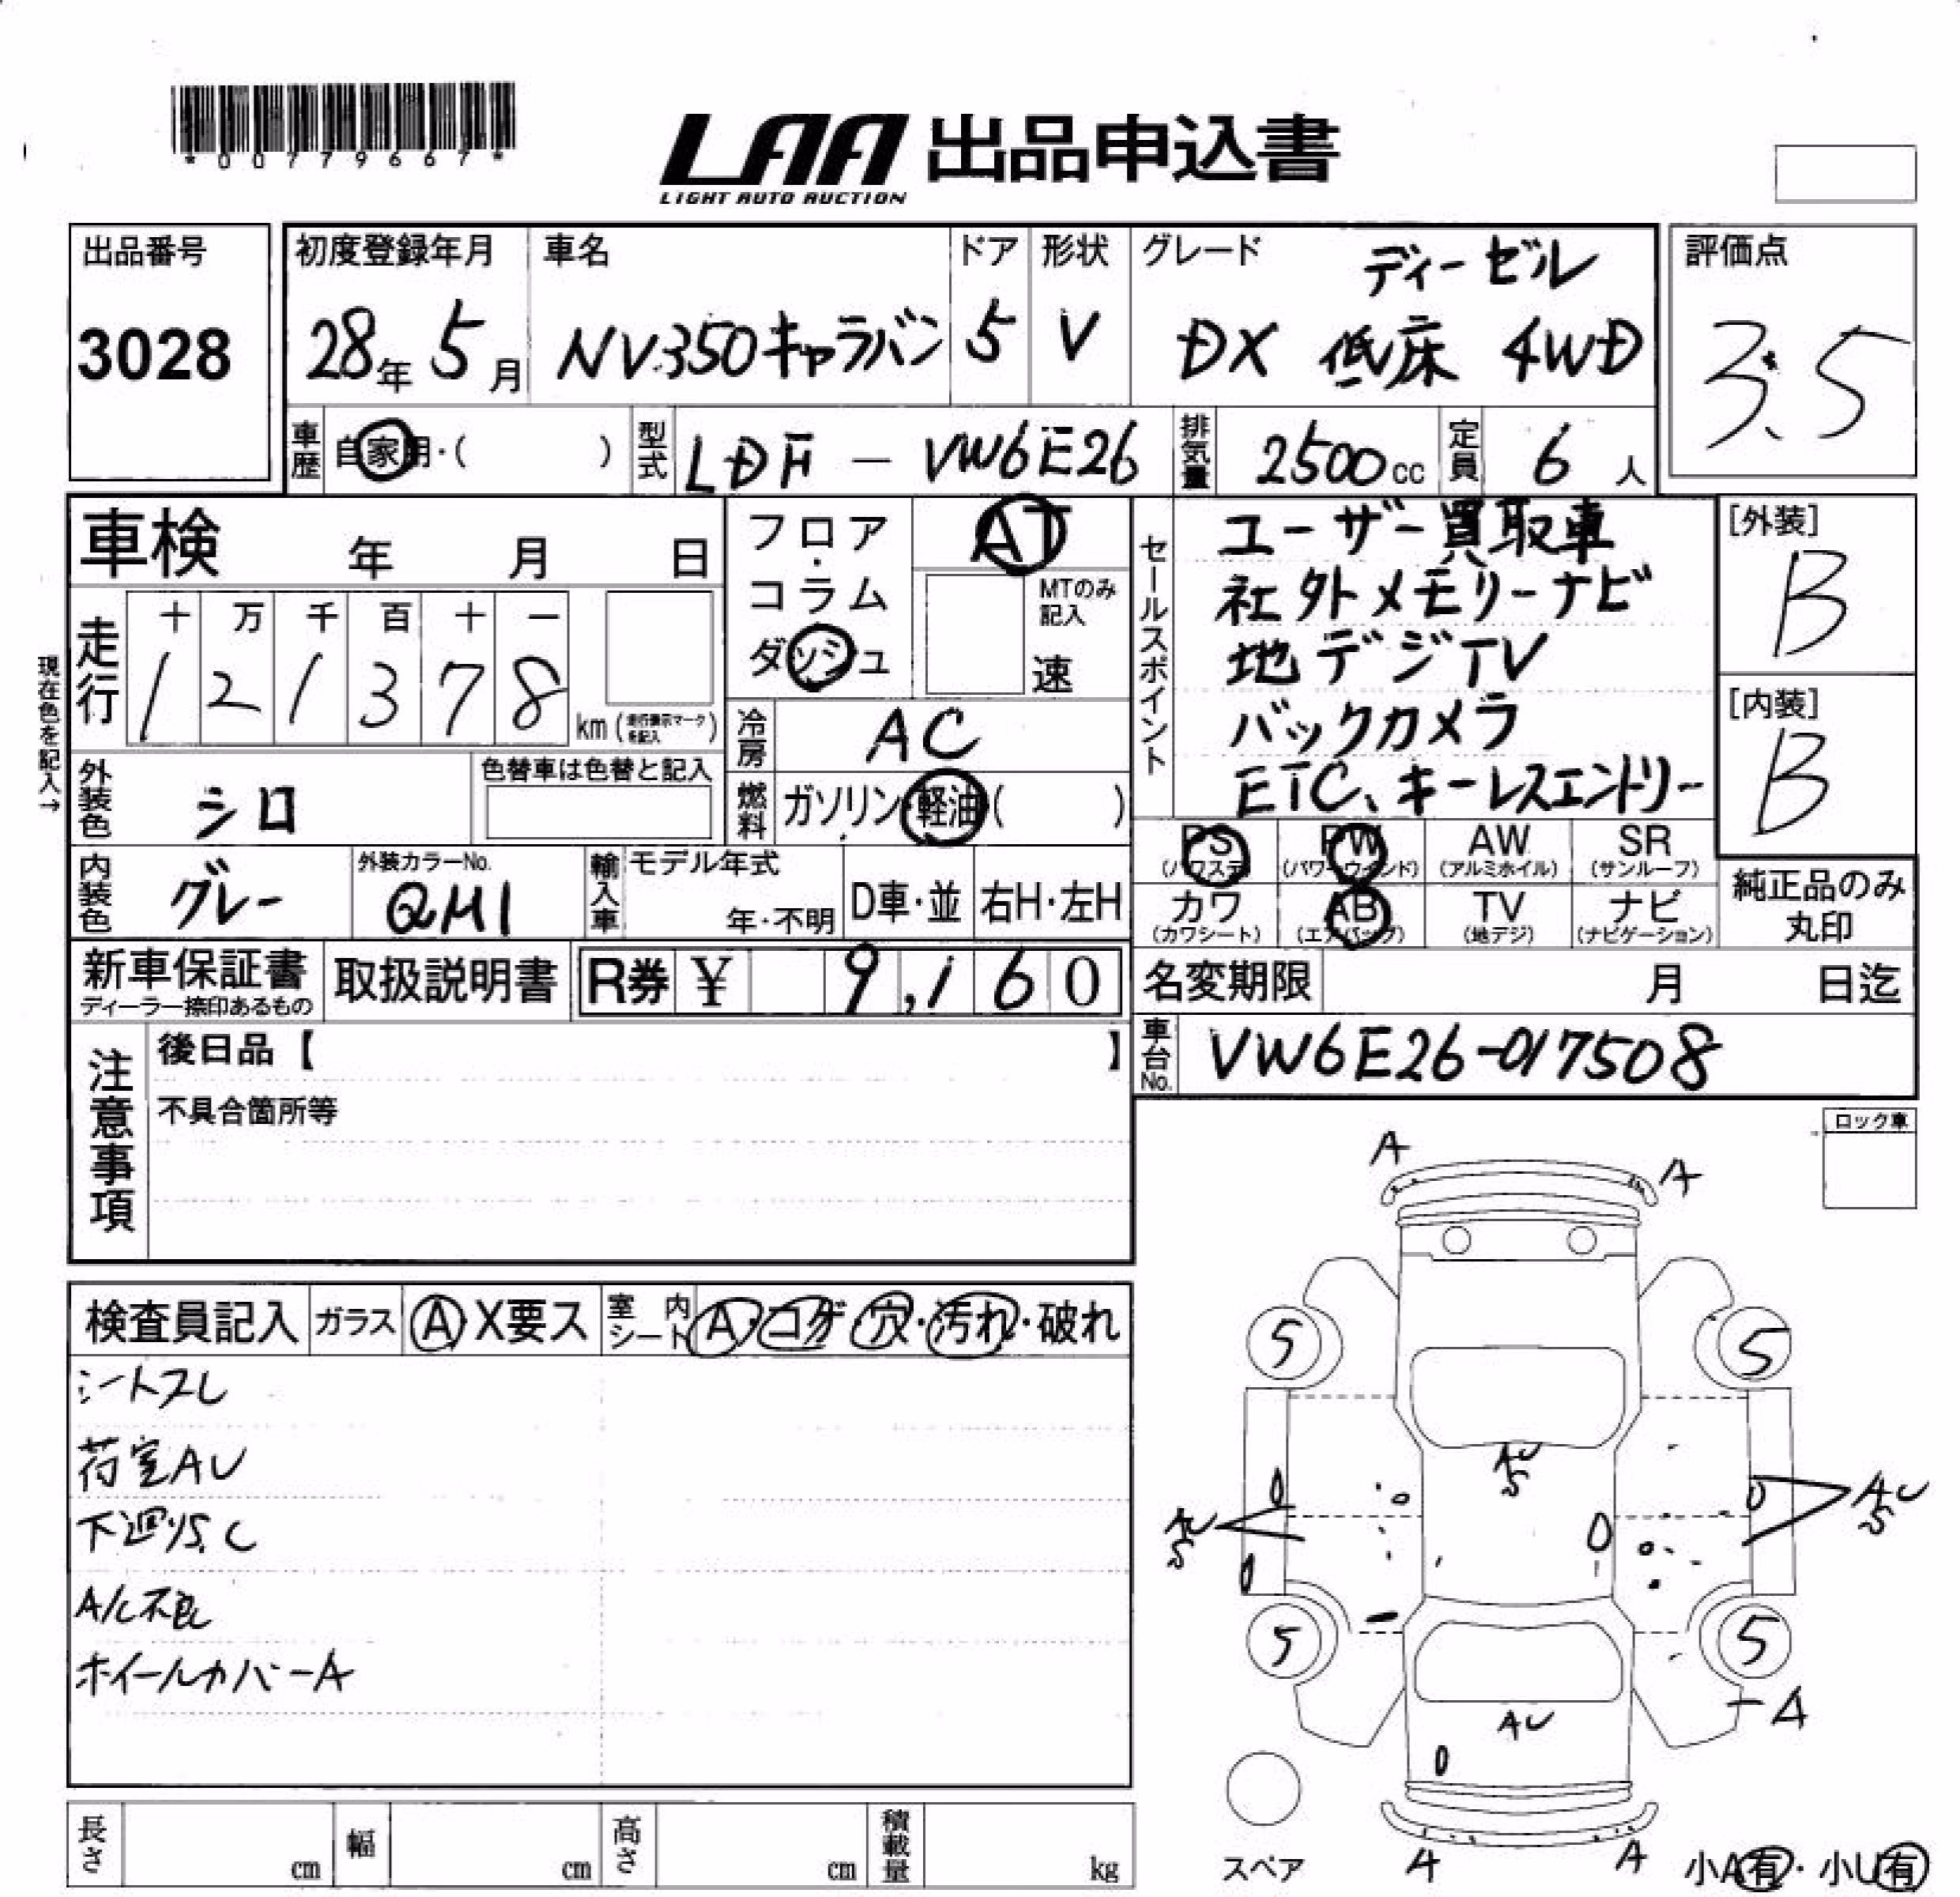 *00779667*
LAA 出品申込書
LIGHT AUTO AUCTION
出品番号
3028
初度登録年月
28年 5月
車名
NV350キャラバン
ドア
5
形状
V
グレード
ディーゼル
DX 低床 4WD
評価点
3.5
車歴 自家用・( )
型式 LDF - VW6E26
排気量 2500cc
定員 6人
車検 年 月 日
走行
十 万 千 百 十 一
1 2 1 3 7 8 km
現在色を記入→
外装色 シロ
色替車は色替と記入
内装色 グレー
外装カラーNo.
QM1
輸入車 モデル年式
年・不明
D車・並
右H・左H
フロア・
コラム
ダッシュ
AT
MTのみ
記入
速
冷房 AC
燃料 ガソリン・軽油( )
セールスポイント
ユーザー買取車
社外メモリーナビ
地デジTV
バックカメラ
ETC、キーレスエントリー
[外装]
B
[内装]
B
PS (パワステ)
PW (パワーウインド)
AW (アルミホイル)
SR (サンルーフ)
カワ (カワシート)
AB (エアバッグ)
TV (地デジ)
ナビ (ナビゲーション)
純正品のみ
丸印
新車保証書
ディーラー捺印あるもの
取扱説明書
R券 ¥ 9,160
名変期限 月 日迄
車台No. VW6E26-017508
注意事項
後日品【 】
不具合箇所等
ロック車
検査員記入
ガラス A X要ス
室内シート A・コゲ・穴・汚れ・破れ
シートスレ
荷室AU
下廻りS.C
A/C不良
ホイールカバーA
A
A
5
5
AU
S
AU
S
AU
S
5
5
A
AU
A
A
スペア
小A有・小U有
長さ cm
幅 cm
高さ cm
積載量 kg